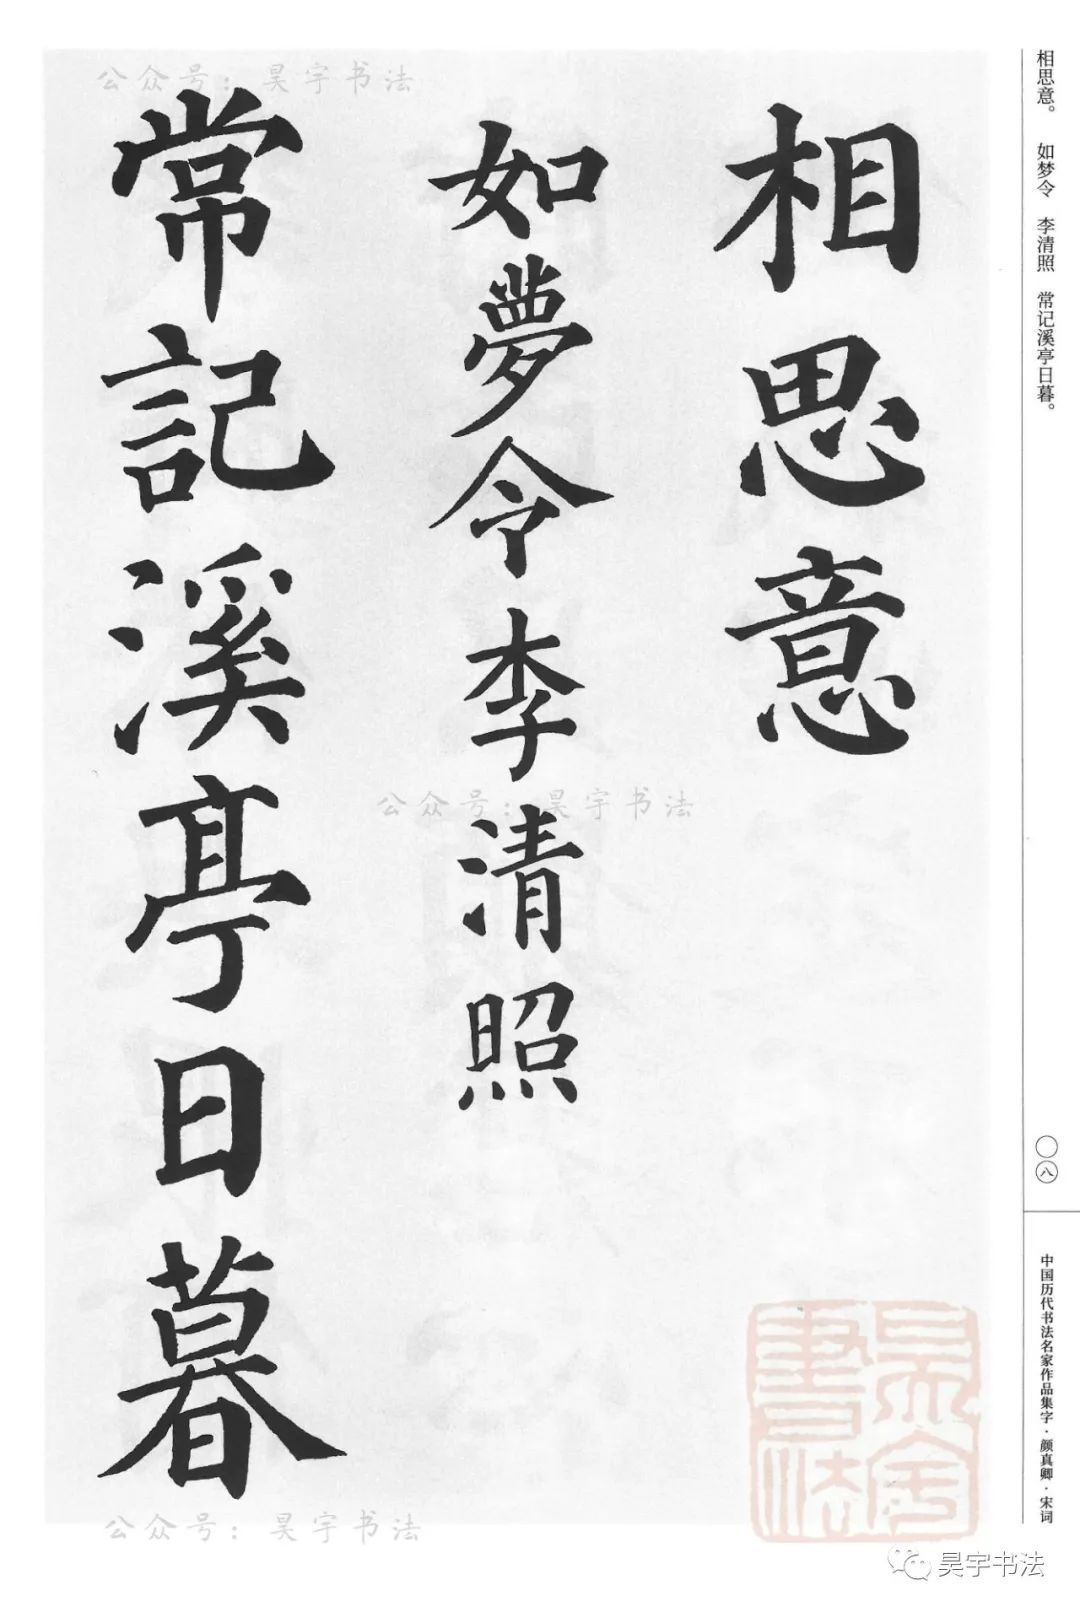 相思意
如夢令李清照
常記溪亭日暮
相思意。 如梦令 李清照 常记溪亭日暮。
〇八
中国历代书法名家作品集字·颜真卿·宋词
公众号：昊宇书法
公众号：昊宇书法
公众号：昊宇书法
昊宇書法
昊宇书法